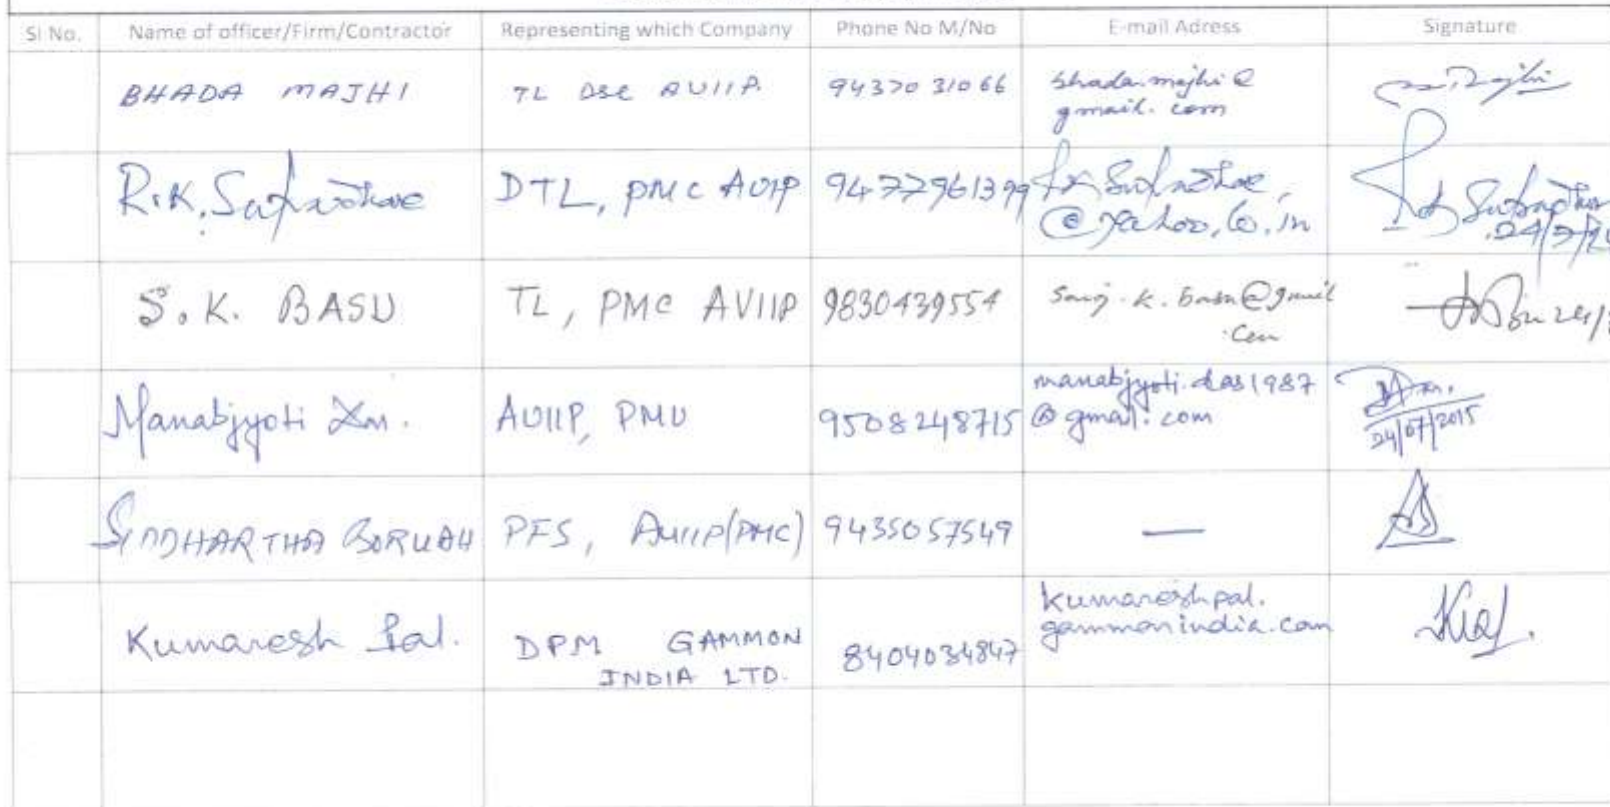 Sl No. Name of officer/Firm/Contractor Representing which Company Phone No M/No E-mail Adress Signature
BHADA MAJHI TL DSC AVIIP. 94370 31066 bhada.majhi@
gmail.com
R.K. DTL, PMC AVIIP 9477961399
@yahoo.co.in
24/7/
S.K. BASU TL, PMC AVIIP 9830439554 .k.basu@gmail
.com
Manabjyoti Das. AVIIP, PMU 9508248715 manabjyoti.das1987
@gmail.com
24/07/2015
SIDDHARTHA BORUAH PFS, AVIIP(PMC) 9435057549 —
Kumaresh Pal. DPM GAMMON 8404034847 kumareshpal.
INDIA LTD. gammonindia.com